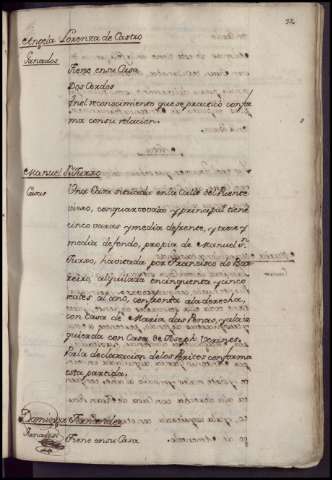 Angela Lorenza de Castro
Ganados
Tiene en su Casa
Dos Cerdos
En el reconocimiento que se practicò confor
ma con su relacion.
Manuel
Casas
Una Casa situada en la Calle del Puente
con quarto vajo y principal tiene
cinco varas y media de frente, y trece y
media de fondo, propia de Manuel
havitada por Francisco do
alquilada en cinquenta y cinco
reales al año, confronta a la derecha,
con Casa de Maria das Penas, y a la iz
quierda con Casa de Joseph
Por la declaracion de los Peritos conforma
esta partida.
Dominga Fernandez
Ganados
Tiene en su Casa